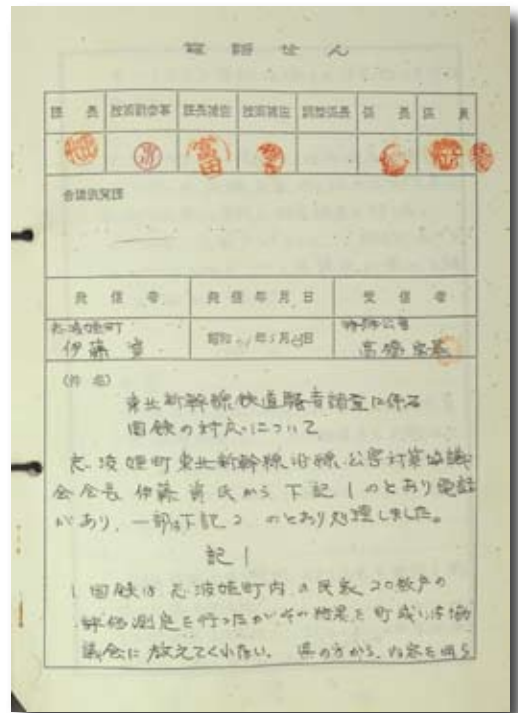 電話せん
課長 技術副参事 課長補佐 技術補佐 調整係長 係長 係員
富田
合議供覧団
発信者 発信年月日 受信者
志波姫町 昭和 年5月 日 特殊公害
伊藤 高橋
(件名)
東北新幹線鉄道騒音調査に係る
国鉄の対応について
志波姫町東北新幹線沿線公害対策協議
会会長 伊藤 氏から下記1のとおり電話
があり、一部は下記2のとおり処理しました。
記1
1 国鉄は志波姫町内の民家20数戸の
測定を行ったがその結果を町或いは協
議会に教えてくれない。県の方から、内容を